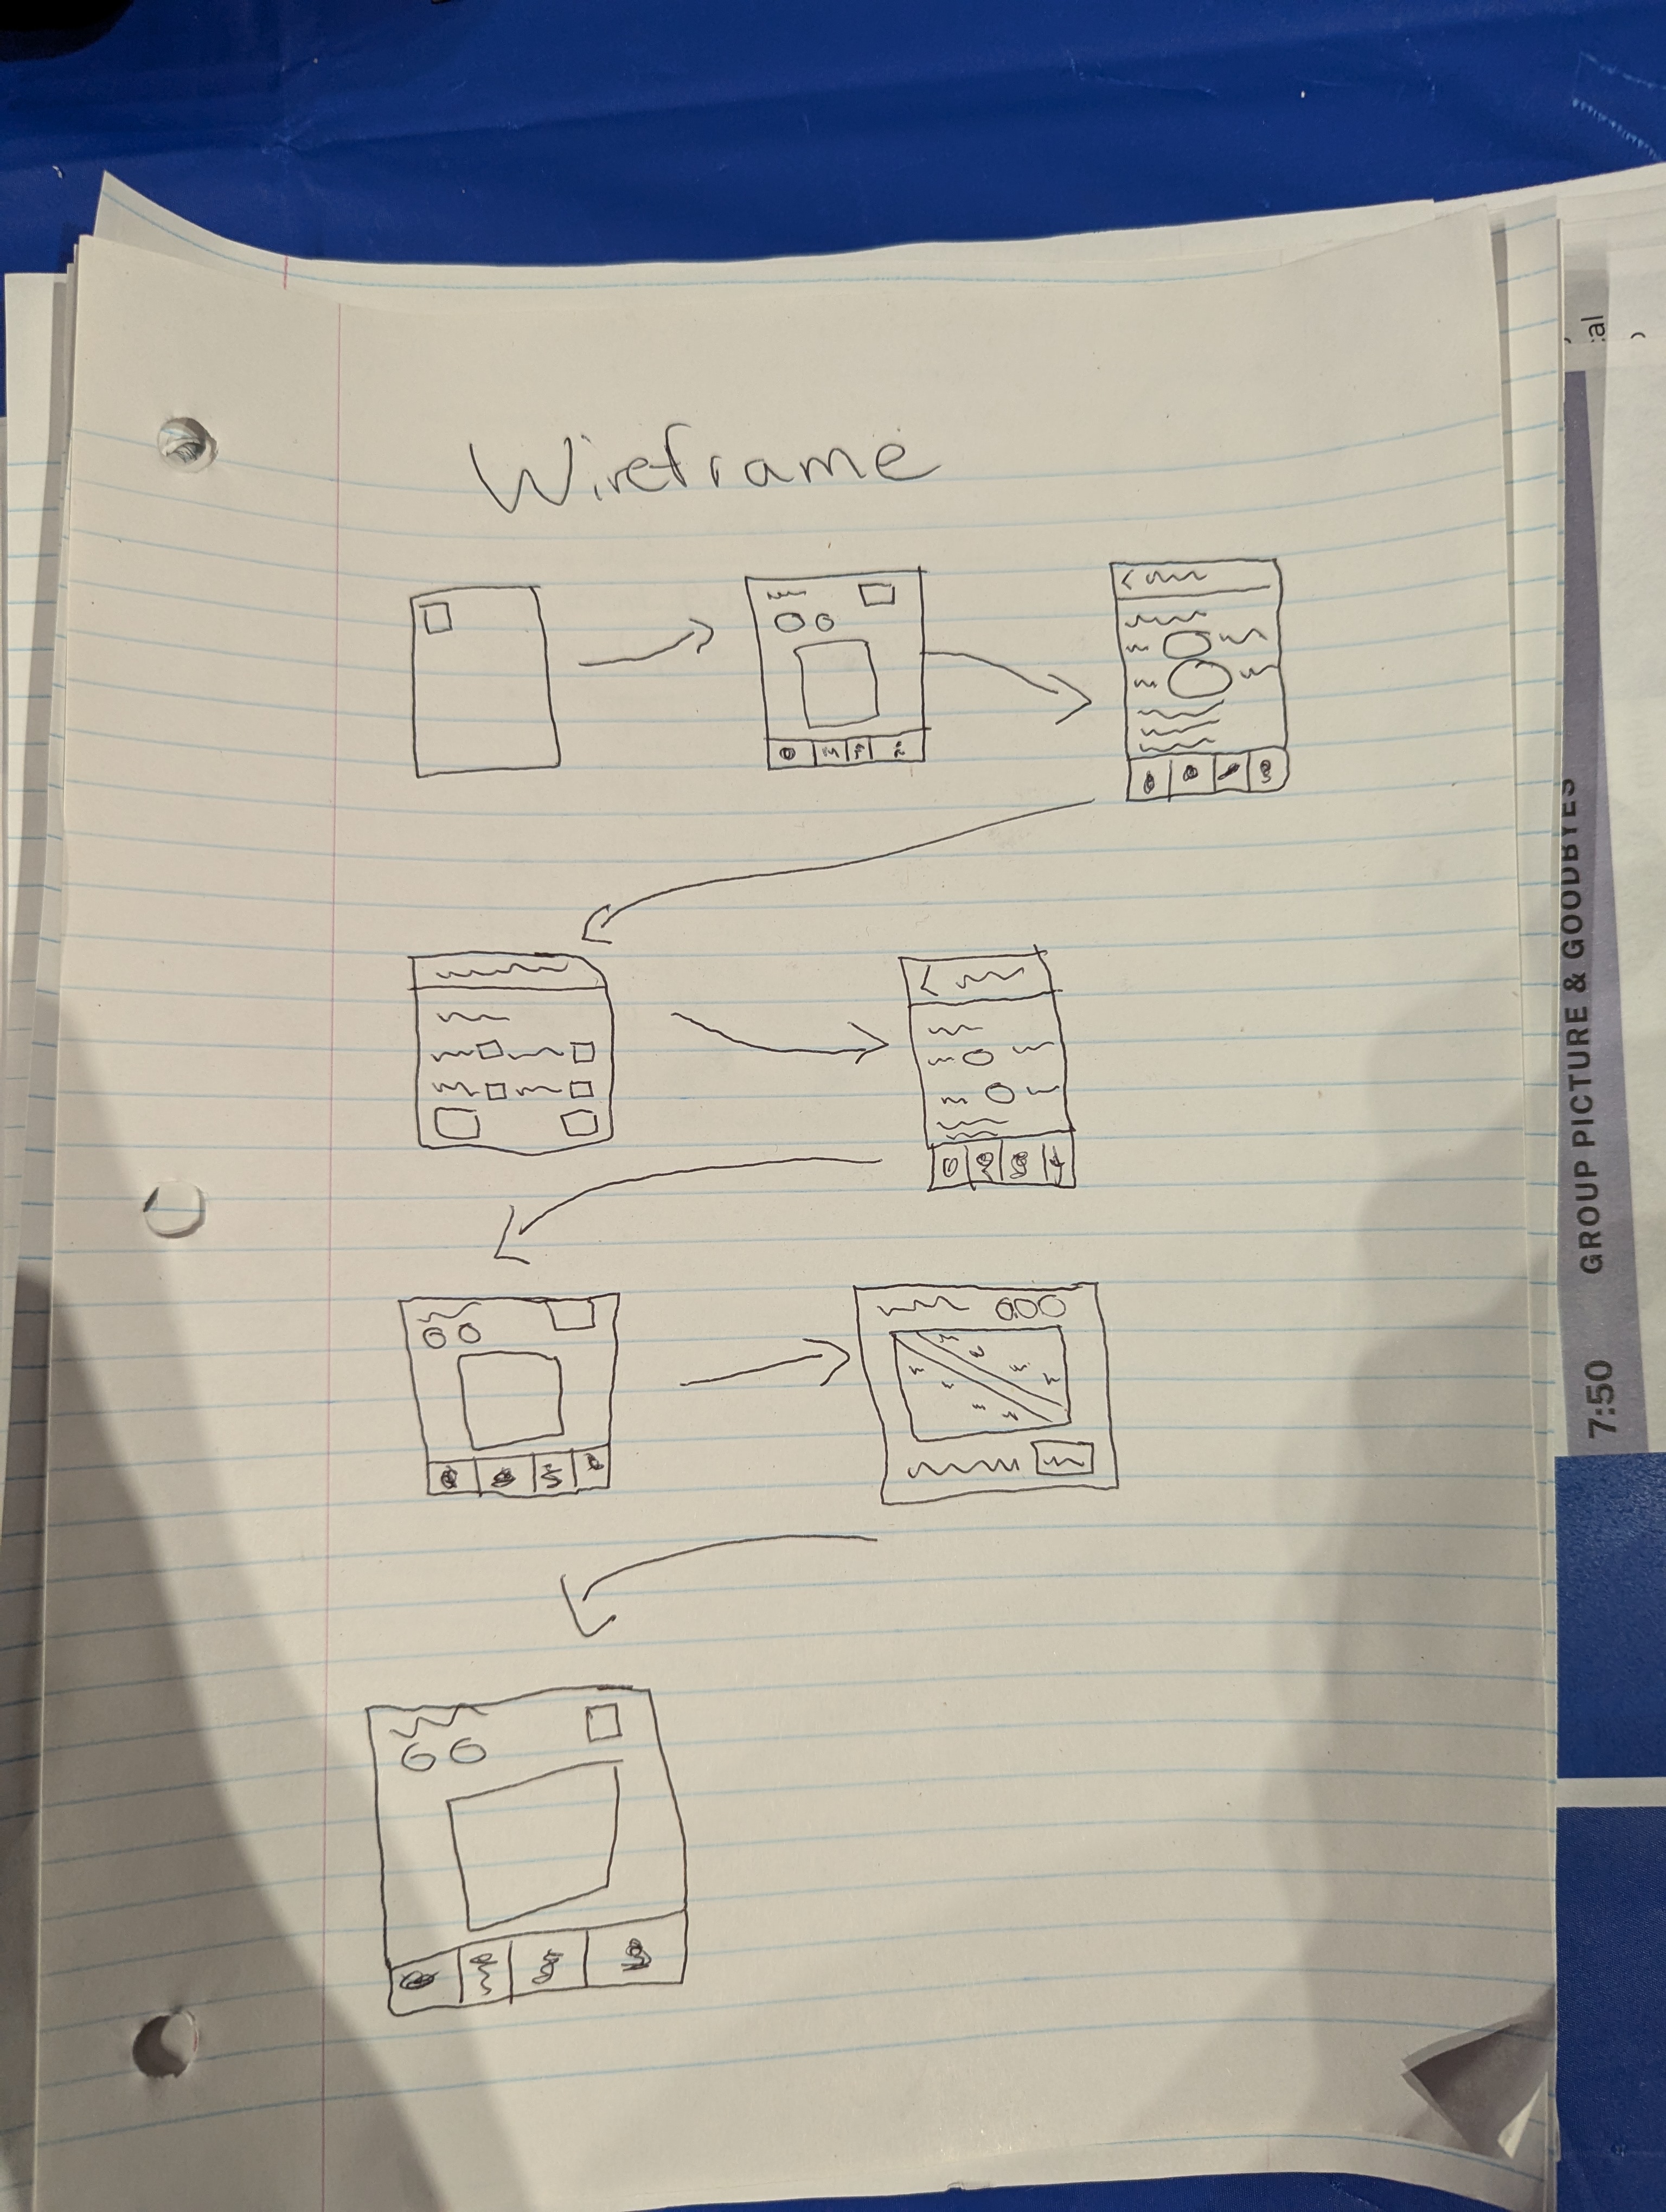 Wireframe
7:50 GROUP PICTURE & GOODBYES